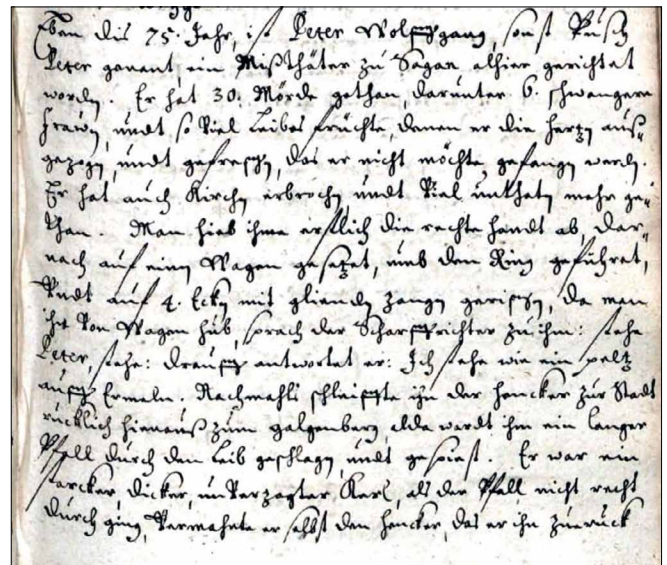 Eben dis 75. Jahr, ist Peter Wolfgang, sonst Pusch
Peter genant, ein Mißthäter zu Sagan alhier gerichtet
worden. Er hat 30. Mörde gethan, darunter 6. schwangere
frawen, undt so viel leibes früchte, denen er die hertzen aus-
gezogen, undt gefreßen, das er nicht möchte gefangen werden.
Er hat auch Kirchen erbrochen undt viel unthaten mehr ge-
than. Man hieb ihme erstlich die rechte handt ab, dar-
nach auf einen Wagen gesetzet, umb den Ring geführet,
Undt auf 4. Ecken mit glienden zangen gerißen, da man
ihn von Wagen hub, sprach der Scharffrichter zu ihm: stehe
Peter, stehe: drauff antwortet er: Ich stehe wie ein peltz
auff Ermeln. Nachmahls schleiffte ihn der hencker zur Stadt
rücklich hienauß zum galgenberg, alda wardt ihm ein langer
Pfall durch den leib geschlagen, undt gespiest. Er war ein
starcker, dicker, unverzagter Kerl, als der Pfall nicht recht
durch ging, vermahnte er selbst den hencker, das er ihn zurück